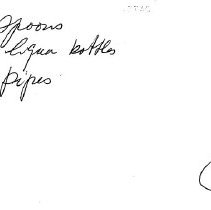 Spoons
liqua bottles
pipes